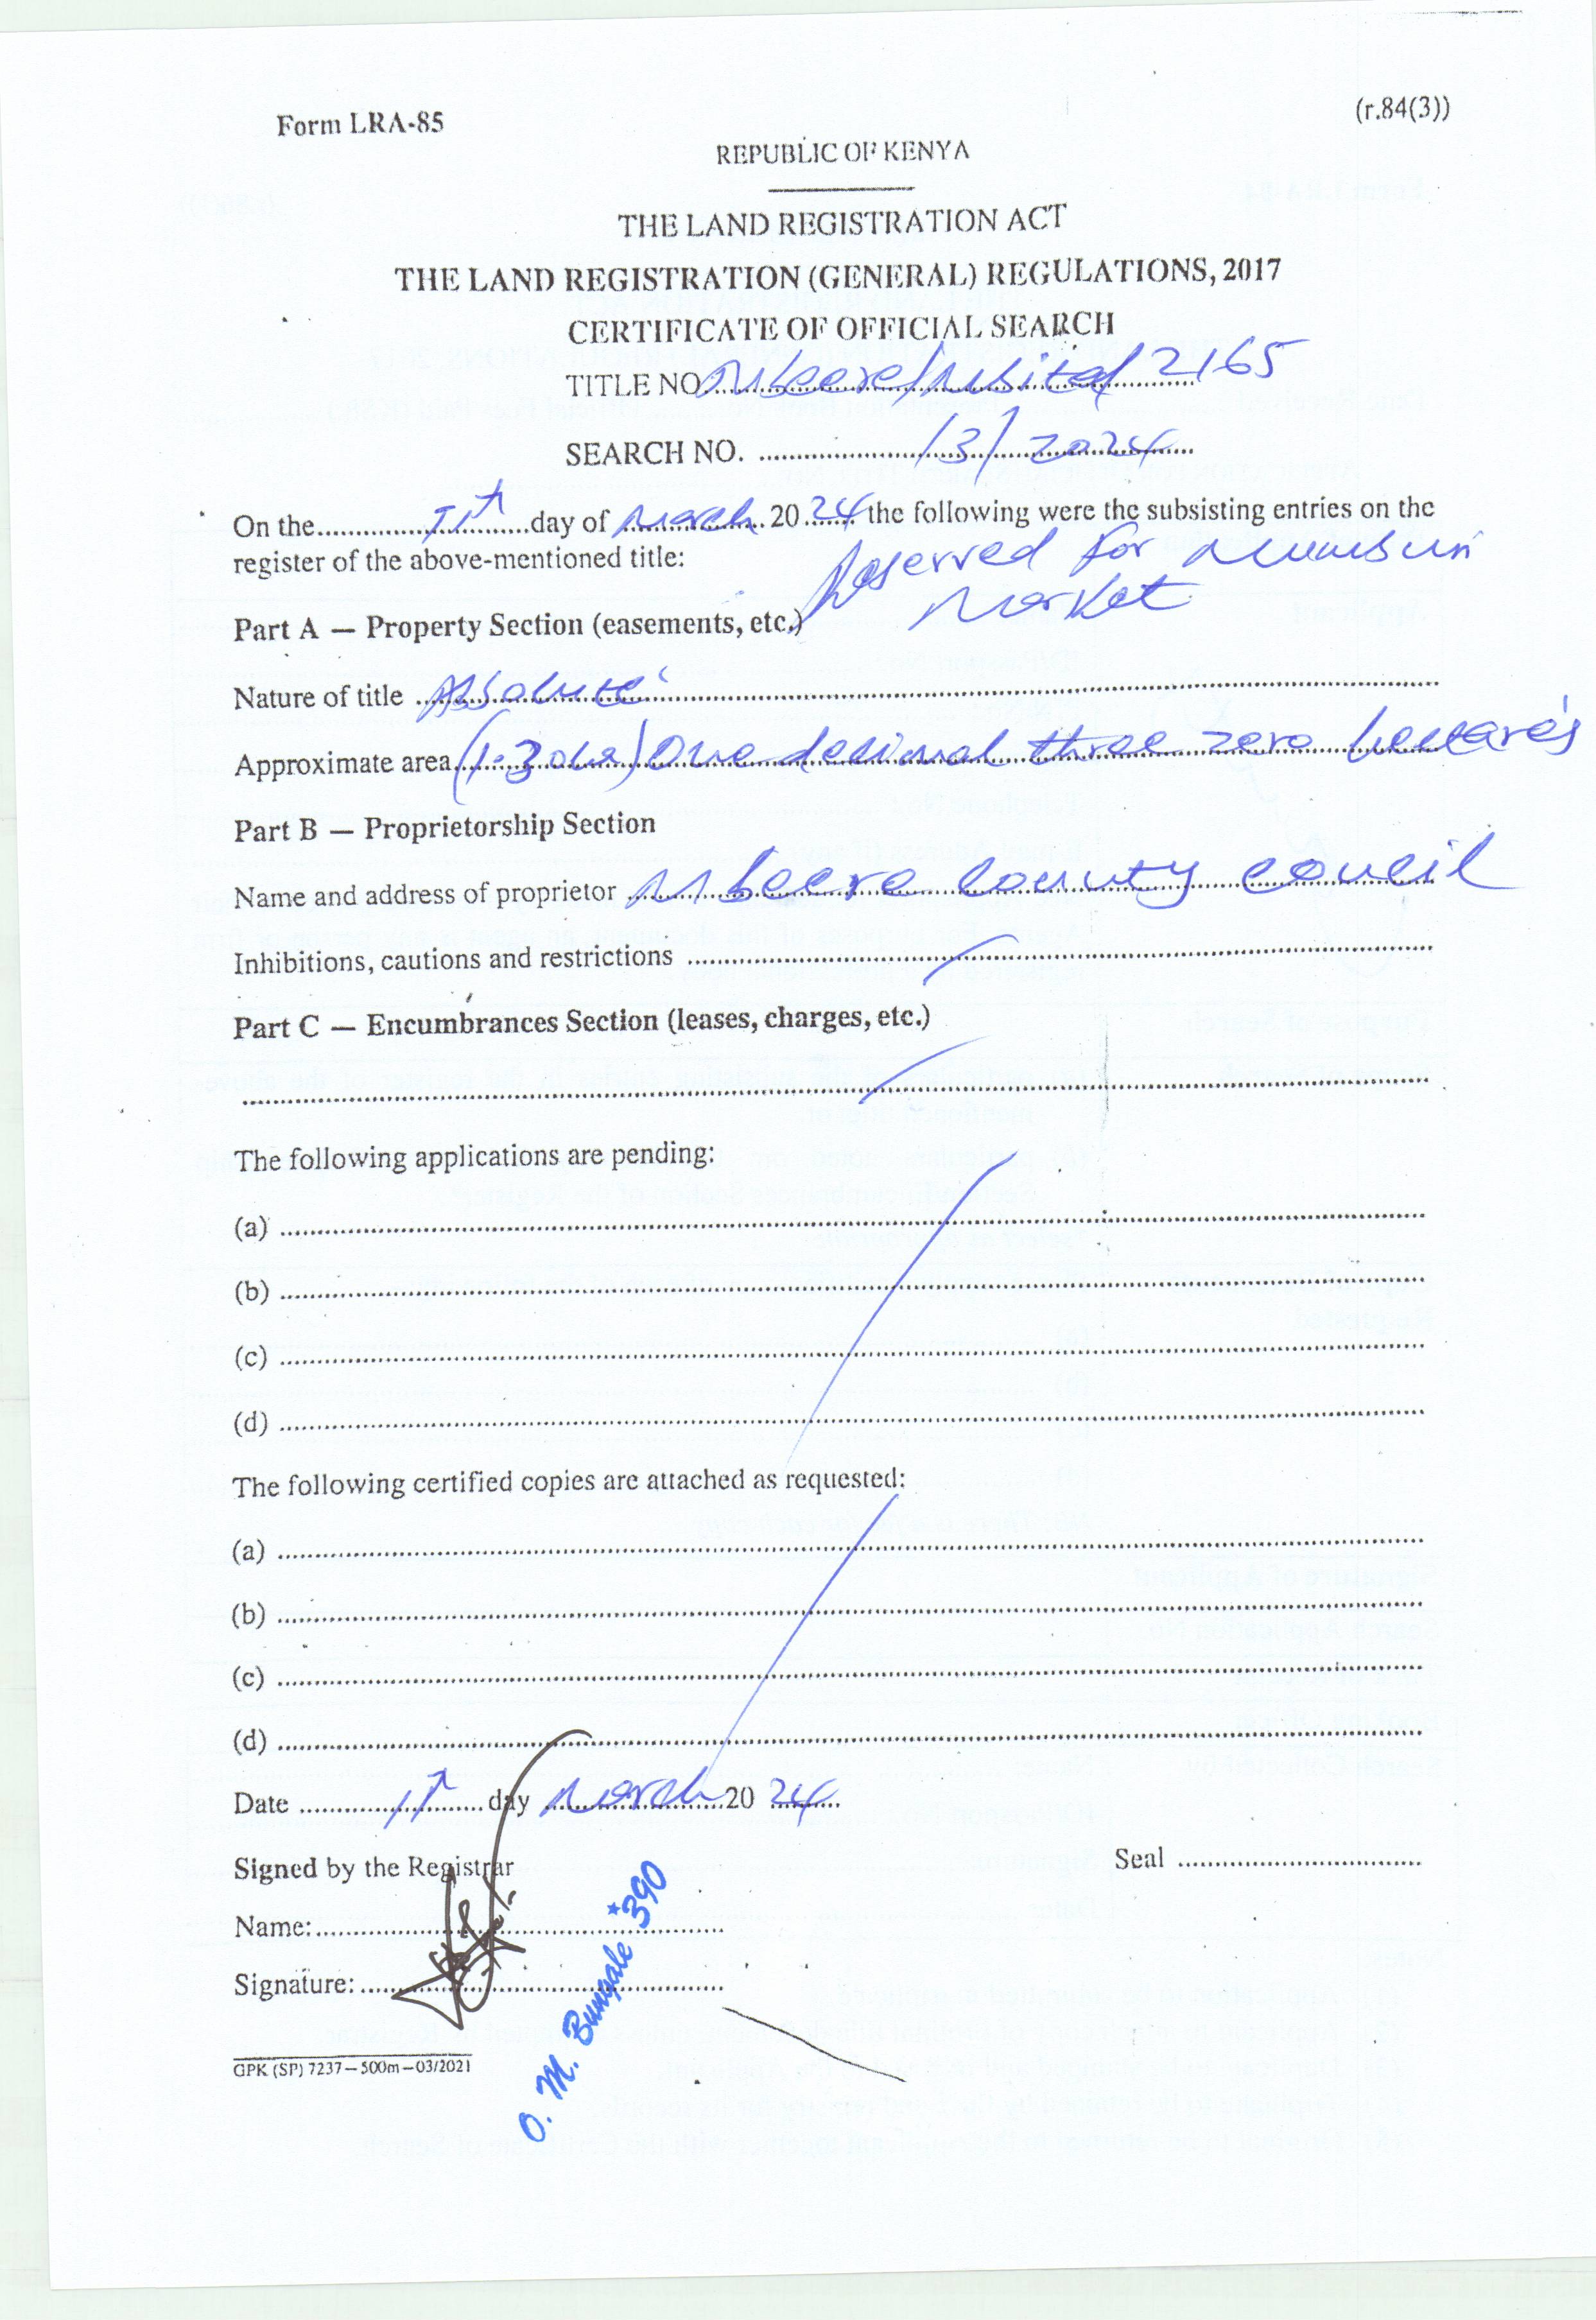 Form LRA-85
(r.84(3))
REPUBLIC OF KENYA
THE LAND REGISTRATION ACT
THE LAND REGISTRATION (GENERAL) REGULATIONS, 2017
CERTIFICATE OF OFFICIAL SEARCH
TITLE NO. Mbeere/Mbita/ 2165
SEARCH NO. ........ /3/ 2024
On the ........ 11th ........ day of March 20 24 the following were the subsisting entries on the
register of the above-mentioned title:
Reserved for
Market
Part A — Property Section (easements, etc.)
Nature of title Absolute
Approximate area (1.30ha) One decimal three zero hectares
Part B — Proprietorship Section
Name and address of proprietor Mbeere County Council
Inhibitions, cautions and restrictions ........
Part C — Encumbrances Section (leases, charges, etc.)
The following applications are pending:
(a) ........
(b) ........
(c) ........
(d) ........
The following certified copies are attached as requested:
(a) ........
(b) ........
(c) ........
(d) ........
Date ........ 11th ........ day March 20 24
Signed by the Registrar
Seal ........
Name: ........
Signature: ........
O. M. Bungale *390
GPK (SP) 7237—500m—03/2021